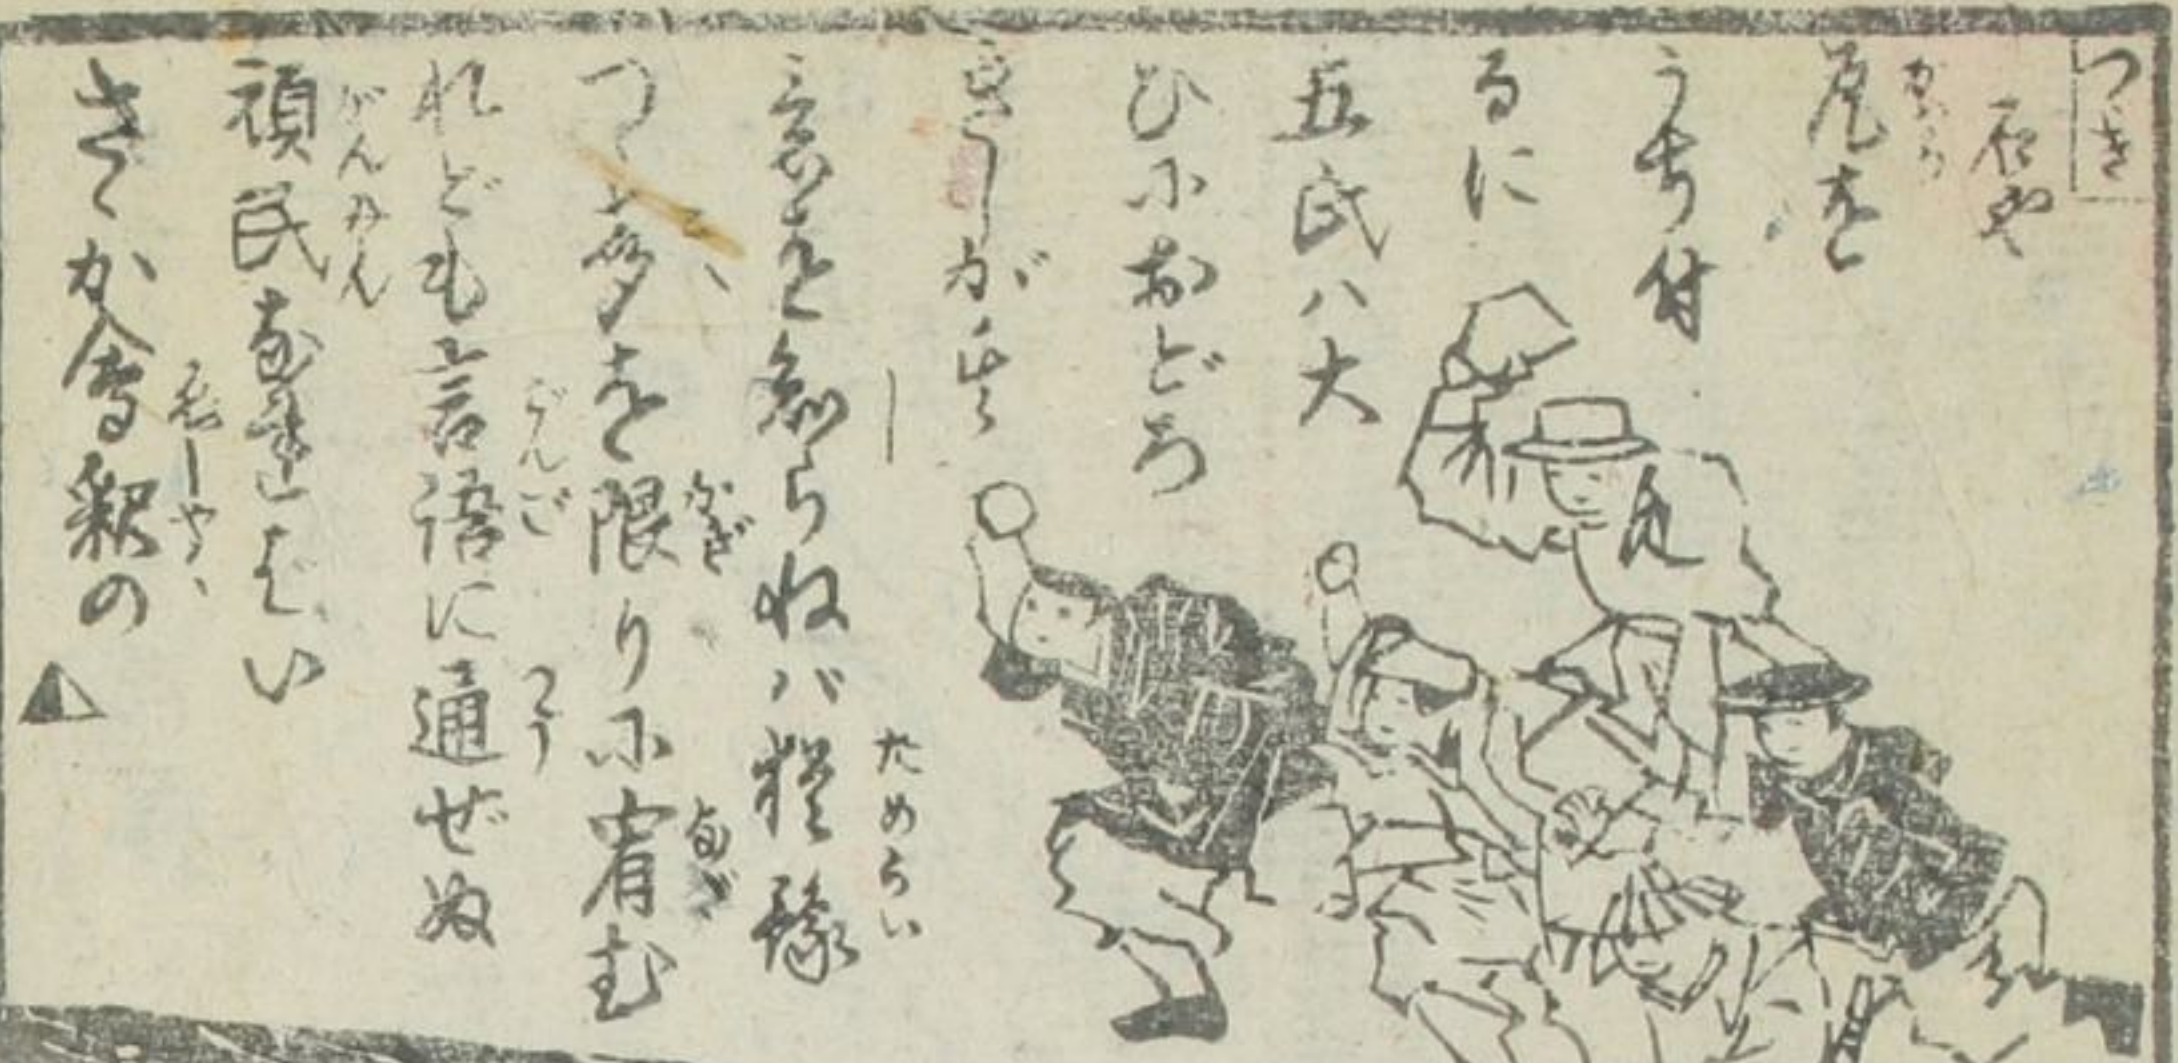 つき
石や
瓦を
うち付
るに
五氏ハ大
ひにおどろ
きしが此
意を知らねバ猶豫
つゝを限りに宥む
れども言語に通ぜぬ
頑民なればい
さゝか會釈の▲